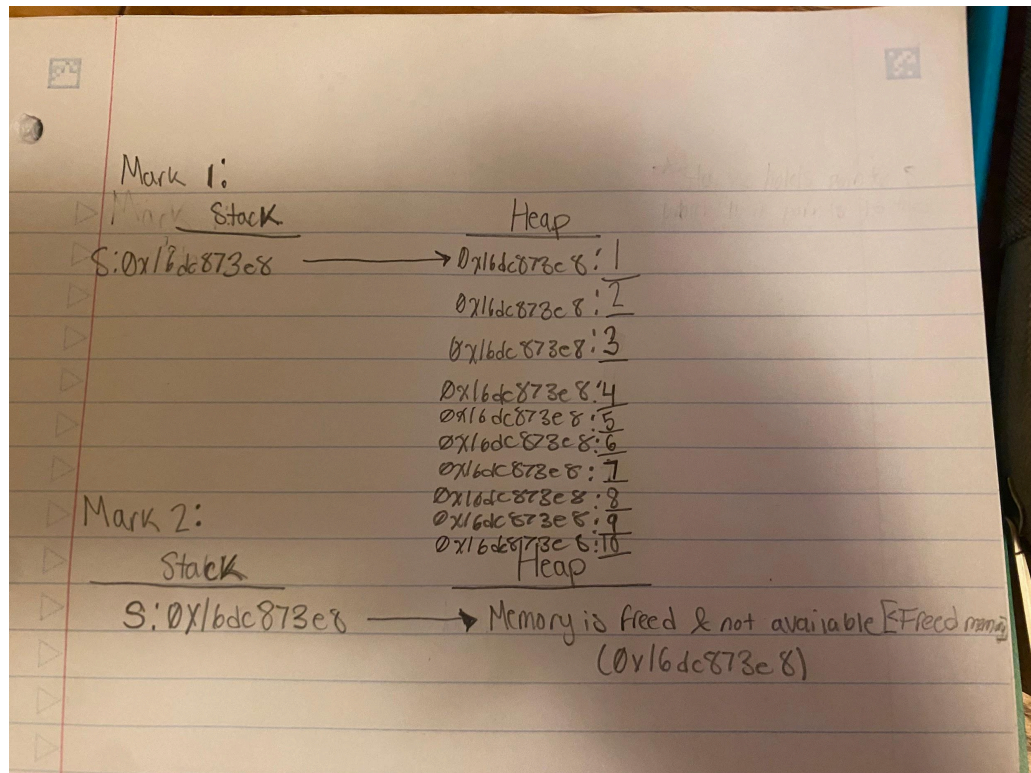 Mark 1:
Stack Heap
S:0x16dc873e8 → 0x16dc873e8: 1
0x16dc873e8: 2
0x16dc873e8: 3
0x16dc873e8: 4
0x16dc873e8: 5
0x16dc873e8: 6
0x16dc873e8: 7
0x16dc873e8: 8
Mark 2:
0x16dc873e8: 9
0x16dc873e8: 10
Stack Heap
S: 0x16dc873e8 → Memory is freed & not available [<Freed memory]
(0x16dc873e8)